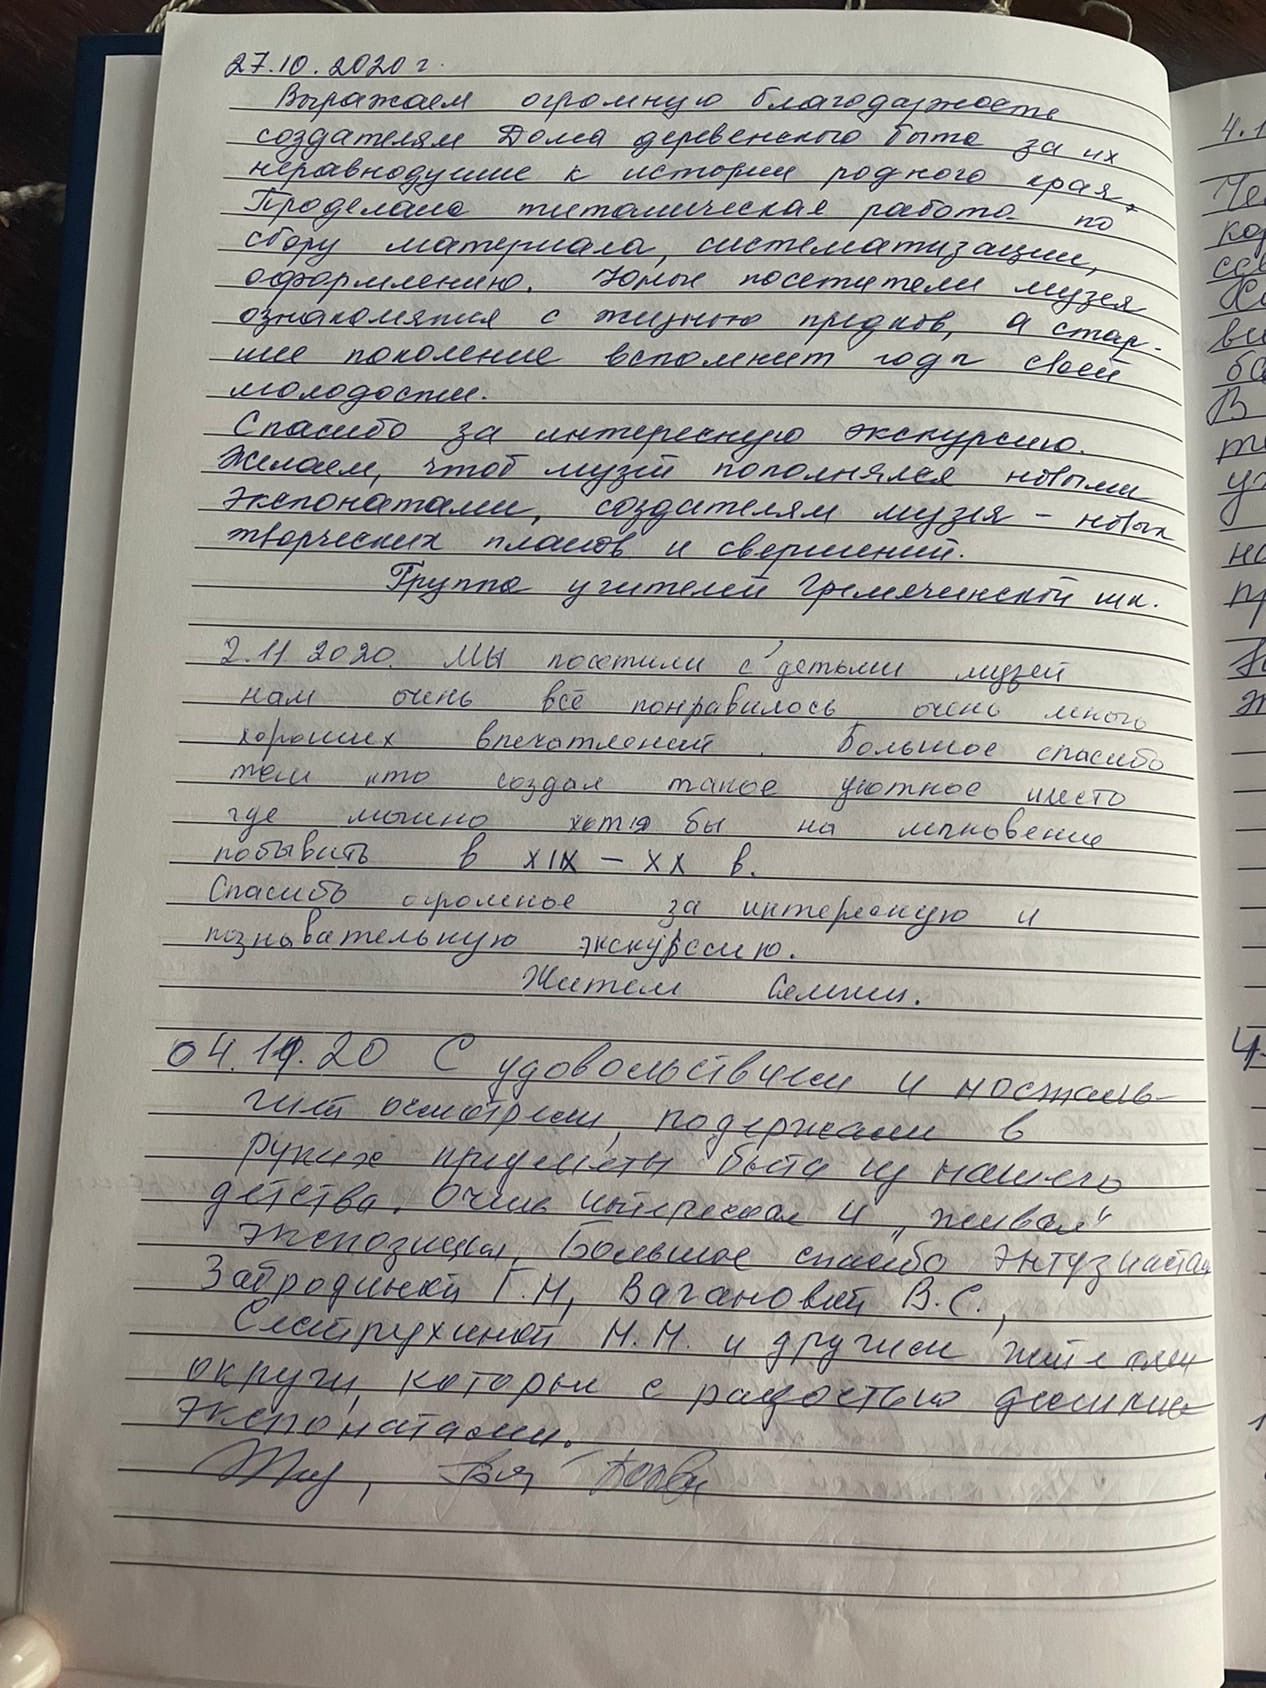 27.10.2020 г.
Выражаем огромную благодарность
создателям Дома деревенского быта за их
неравнодушие к истории родного края.
Проделана титаническая работа по
сбору материала, систематизации,
оформлению. Юные посетители музея
ознакомятся с жизнью предков, а стар-
шее поколение вспомнит годы своей
молодости.
Спасибо за интересную экскурсию.
Желаем, чтоб музей пополнялся новыми
экспонатами, создателям музея - новых
творческих планов и свершений.
Группа учителей Гремячинской шк.
2.11.2020. Мы посетили с детьми музей
нам очень всё понравилось очень много
хороших впечатлений. Большое спасибо
тем кто создал такое уютное место
где можно хотя бы на мгновение
побывать в XIX - XX в.
Спасибо огромное за интересную и
познавательную экскурсию.
Жители Селищи.
04.11.20 С удовольствием и носталь-
гией осмотрели, подержали в
руках предметы быта из нашего
детства. Очень интересная и "живая"
экспозиция. Большое спасибо энтузиастам
Забродиной Г.Н, Вагановой В.С.,
Н.Н. и другим жителям
округи, которые с радостью делились
экспонатами.
4.1